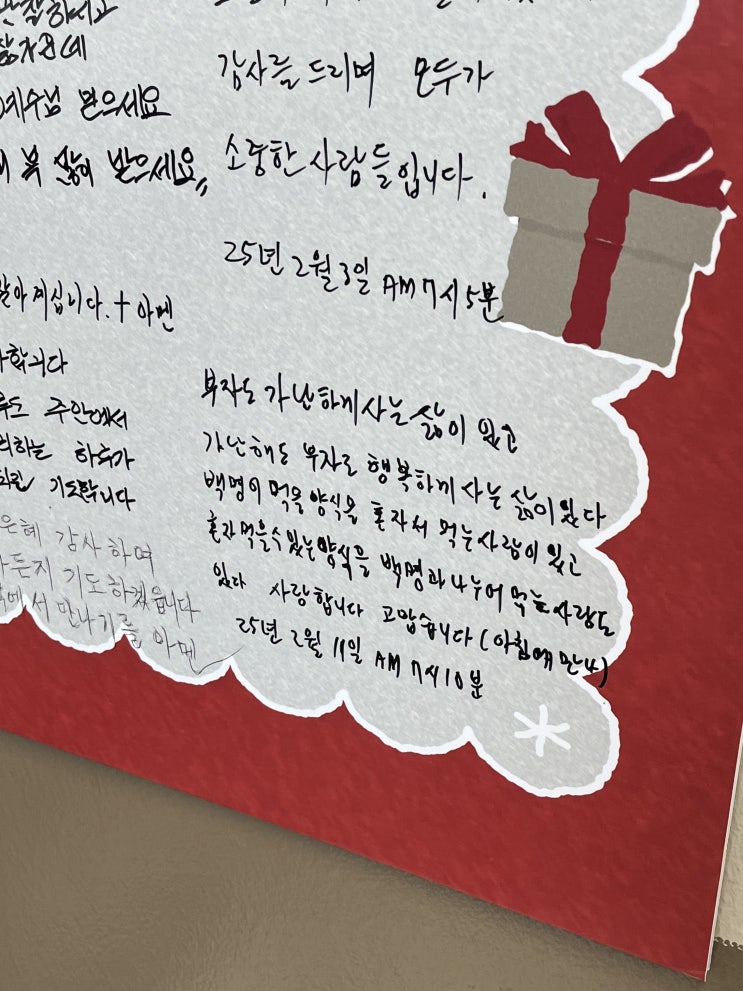 하시고
예수님 믿으세요
복 많이 받으세요"
감사를 드리며 모두가
소중한 사람들입니다.
25년 2월 3일 AM 7시 5분
계십니다. + 아멘
주안에서
하루가
기도합니다
은혜 감사하며
기도하겠습니다
에서 만나기를 아멘
부자도 가난하게 사는 삶이 있고
가난해도 부자로 행복하게 사는 삶이 있다
백명이 먹을 양식을 혼자서 먹는 사람이 있고
혼자 먹을수 있는 양식을 백명과 나누어 먹는 사람도
있다 사랑합니다 고맙습니다 (아침에 만나)
25년 2월 11일 AM 7시 10분